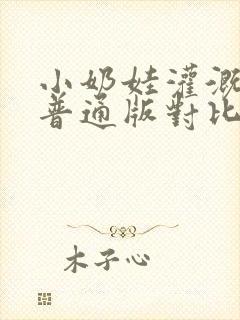 小奶娃灌溉
普通版對比
木子心